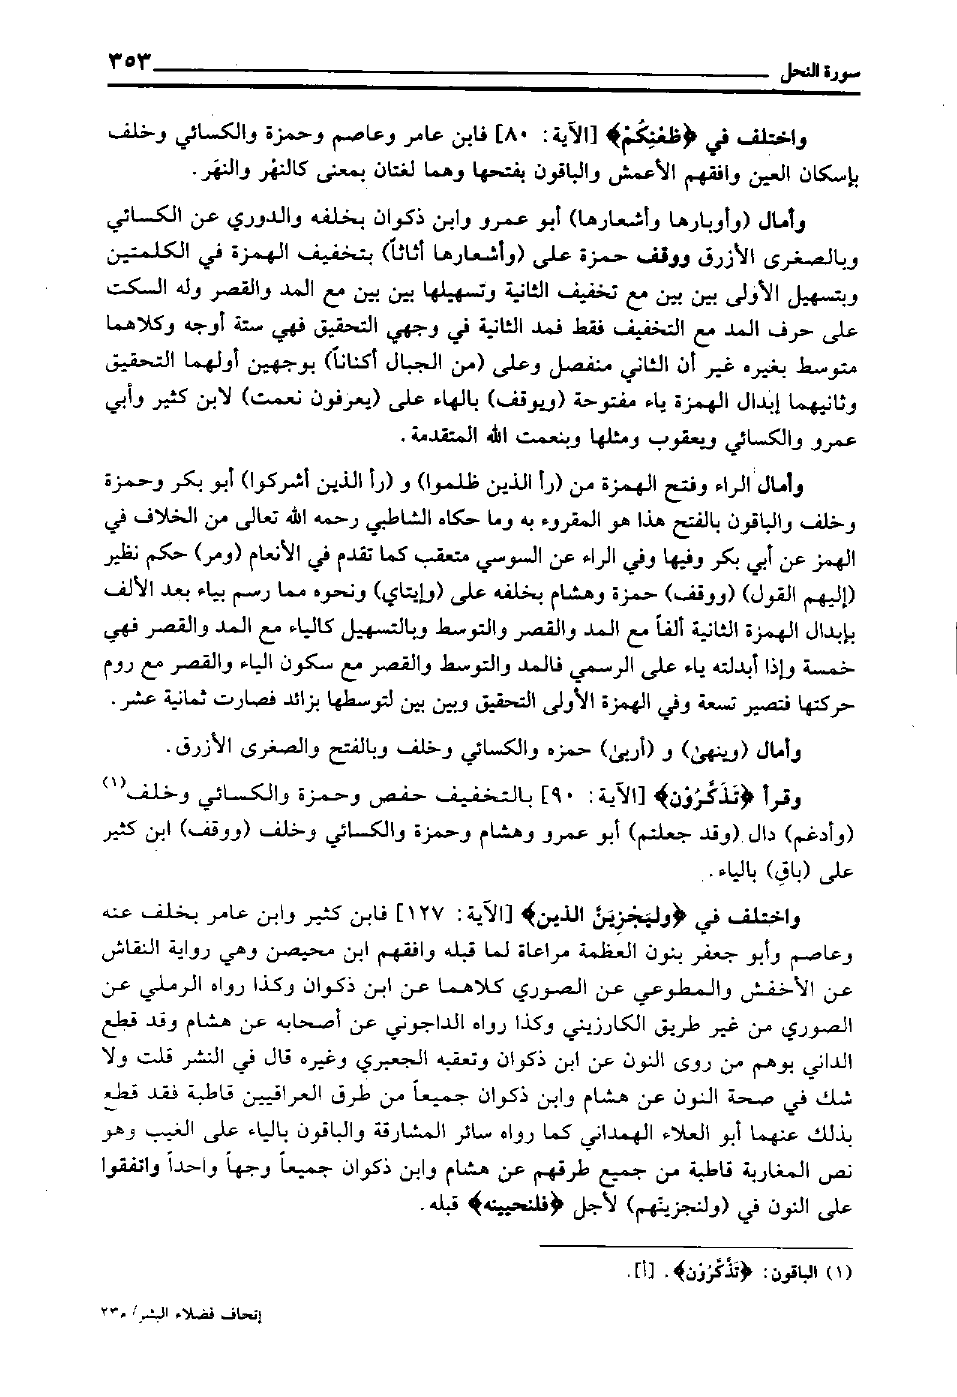 سورة النحل ٣٥٣
واختلف في ﴿ظَعْنِكُمْ﴾ [الآية: ٨٠] فابن عامر وعاصم وحمزة والكسائي وخلف
بإسكان العين وافقهم الأعمش والباقون بفتحها وهما لغتان بمعنى كالنهْر والنهَر.
وأمال (وأوبارها وأشعارها) أبو عمرو وابن ذكوان بخلفه والدوري عن الكسائي
وبالصغرى الأزرق ووقف حمزة على (وأشعارها أثاثاً) بتخفيف الهمزة في الكلمتين
وبتسهيل الأولى بين بين مع تخفيف الثانية وتسهيلها بين بين مع المد والقصر وله السكت
على حرف المد مع التخفيف فقط فمد الثانية في وجهي التحقيق فهي ستة أوجه وكلاهما
متوسط بغيره غير أن الثاني منفصل وعلى (من الجبال أكناناً) بوجهين أولهما التحقيق
وثانيهما إبدال الهمزة ياء مفتوحة (ويوقف) بالهاء على (يعرفون نعمت) لابن كثير وأبي
عمرو والكسائي ويعقوب ومثلها وبنعمت الله المتقدمة.
وأمال الراء وفتح الهمزة من (رأ الذين ظلموا) و (رأ الذين أشركوا) أبو بكر وحمزة
وخلف والباقون بالفتح هذا هو المقروء به وما حكاه الشاطبي رحمه الله تعالى من الخلاف في
الهمز عن أبي بكر وفيها وفي الراء عن السوسي متعقب كما تقدم في الأنعام (ومر) حكم نظير
(إليهم القول) (ووقف) حمزة وهشام بخلفه على (وإيتاي) ونحوه مما رسم بياء بعد الألف
بإبدال الهمزة الثانية ألفاً مع المد والقصر والتوسط وبالتسهيل كالياء مع المد والقصر فهي
خمسة وإذا أبدلته ياء على الرسمي فالمد والتوسط والقصر مع سكون الياء والقصر مع روم
حركتها فتصير تسعة وفي الهمزة الأولى التحقيق وبين بين لتوسطها بزائد فصارت ثمانية عشر.
وأمال (وينهىٰ) و (أربىٰ) حمزه والكسائي وخلف وبالفتح والصغرى الأزرق.
وقرأ ﴿تَذَكَّرُوْن﴾ [الآية: ٩٠] بالتخفيف حفص وحمزة والكسائي وخلف(١)
(وأدغم) دال (وقد جعلتم) أبو عمرو وهشام وحمزة والكسائي وخلف (ووقف) ابن كثير
على (باقٍ) بالياء.
واختلف في ﴿وليَجْزِيَنَّ الذين﴾ [الآية: ١٢٧] فابن كثير وابن عامر بخلف عنه
وعاصم وأبو جعفر بنون العظمة مراعاة لما قبله وافقهم ابن محيصن وهي رواية النقاش
عن الأخفش والمطوعي عن الصوري كلاهما عن ابن ذكوان وكذا رواه الرملي عن
الصوري من غير طريق الكارزيني وكذا رواه الداجوني عن أصحابه عن هشام وقد قطع
الداني بوهم من روى النون عن ابن ذكوان وتعقبه الجعبري وغيره قال في النشر قلت ولا
شك في صحة النون عن هشام وابن ذكوان جميعاً من طرق العراقيين قاطبة فقد قطع
بذلك عنهما أبو العلاء الهمداني كما رواه سائر المشارقة والباقون بالياء على الغيب وهو
نص المغاربة قاطبة من جميع طرقهم عن هشام وابن ذكوان جميعاً وجهاً واحداً واتفقوا
على النون في (ولنجزينهم) لأجل ﴿فلنحيينه﴾ قبله.
(١) الباقون: ﴿تَذَّكَّرُوْن﴾. [أ].
إتحاف فضلاء البشر/ م٢٣